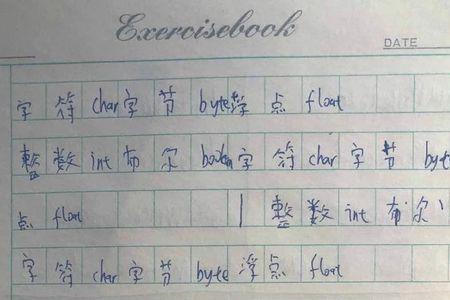 Exercisebook
DATE
字符char字节byte浮点float
整数int布尔boolean字符char字节byte
点float 整数int布尔
字符char字节byte浮点float